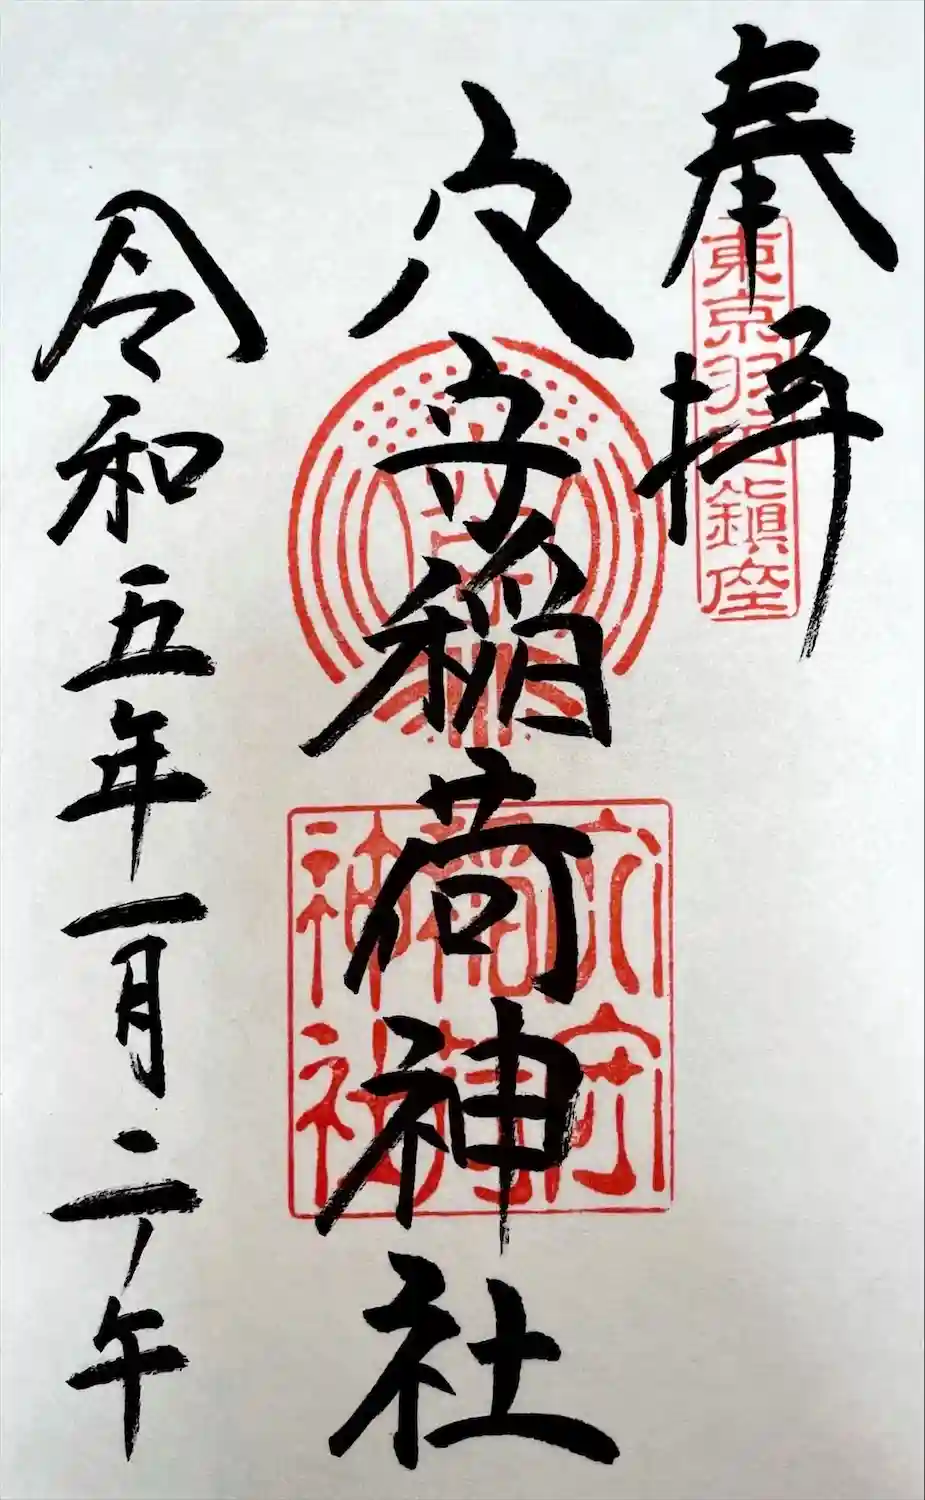 奉拝
東京羽田鎮座
穴守稲荷神社
穴守
稲荷
神社
令和五年一月二ノ午